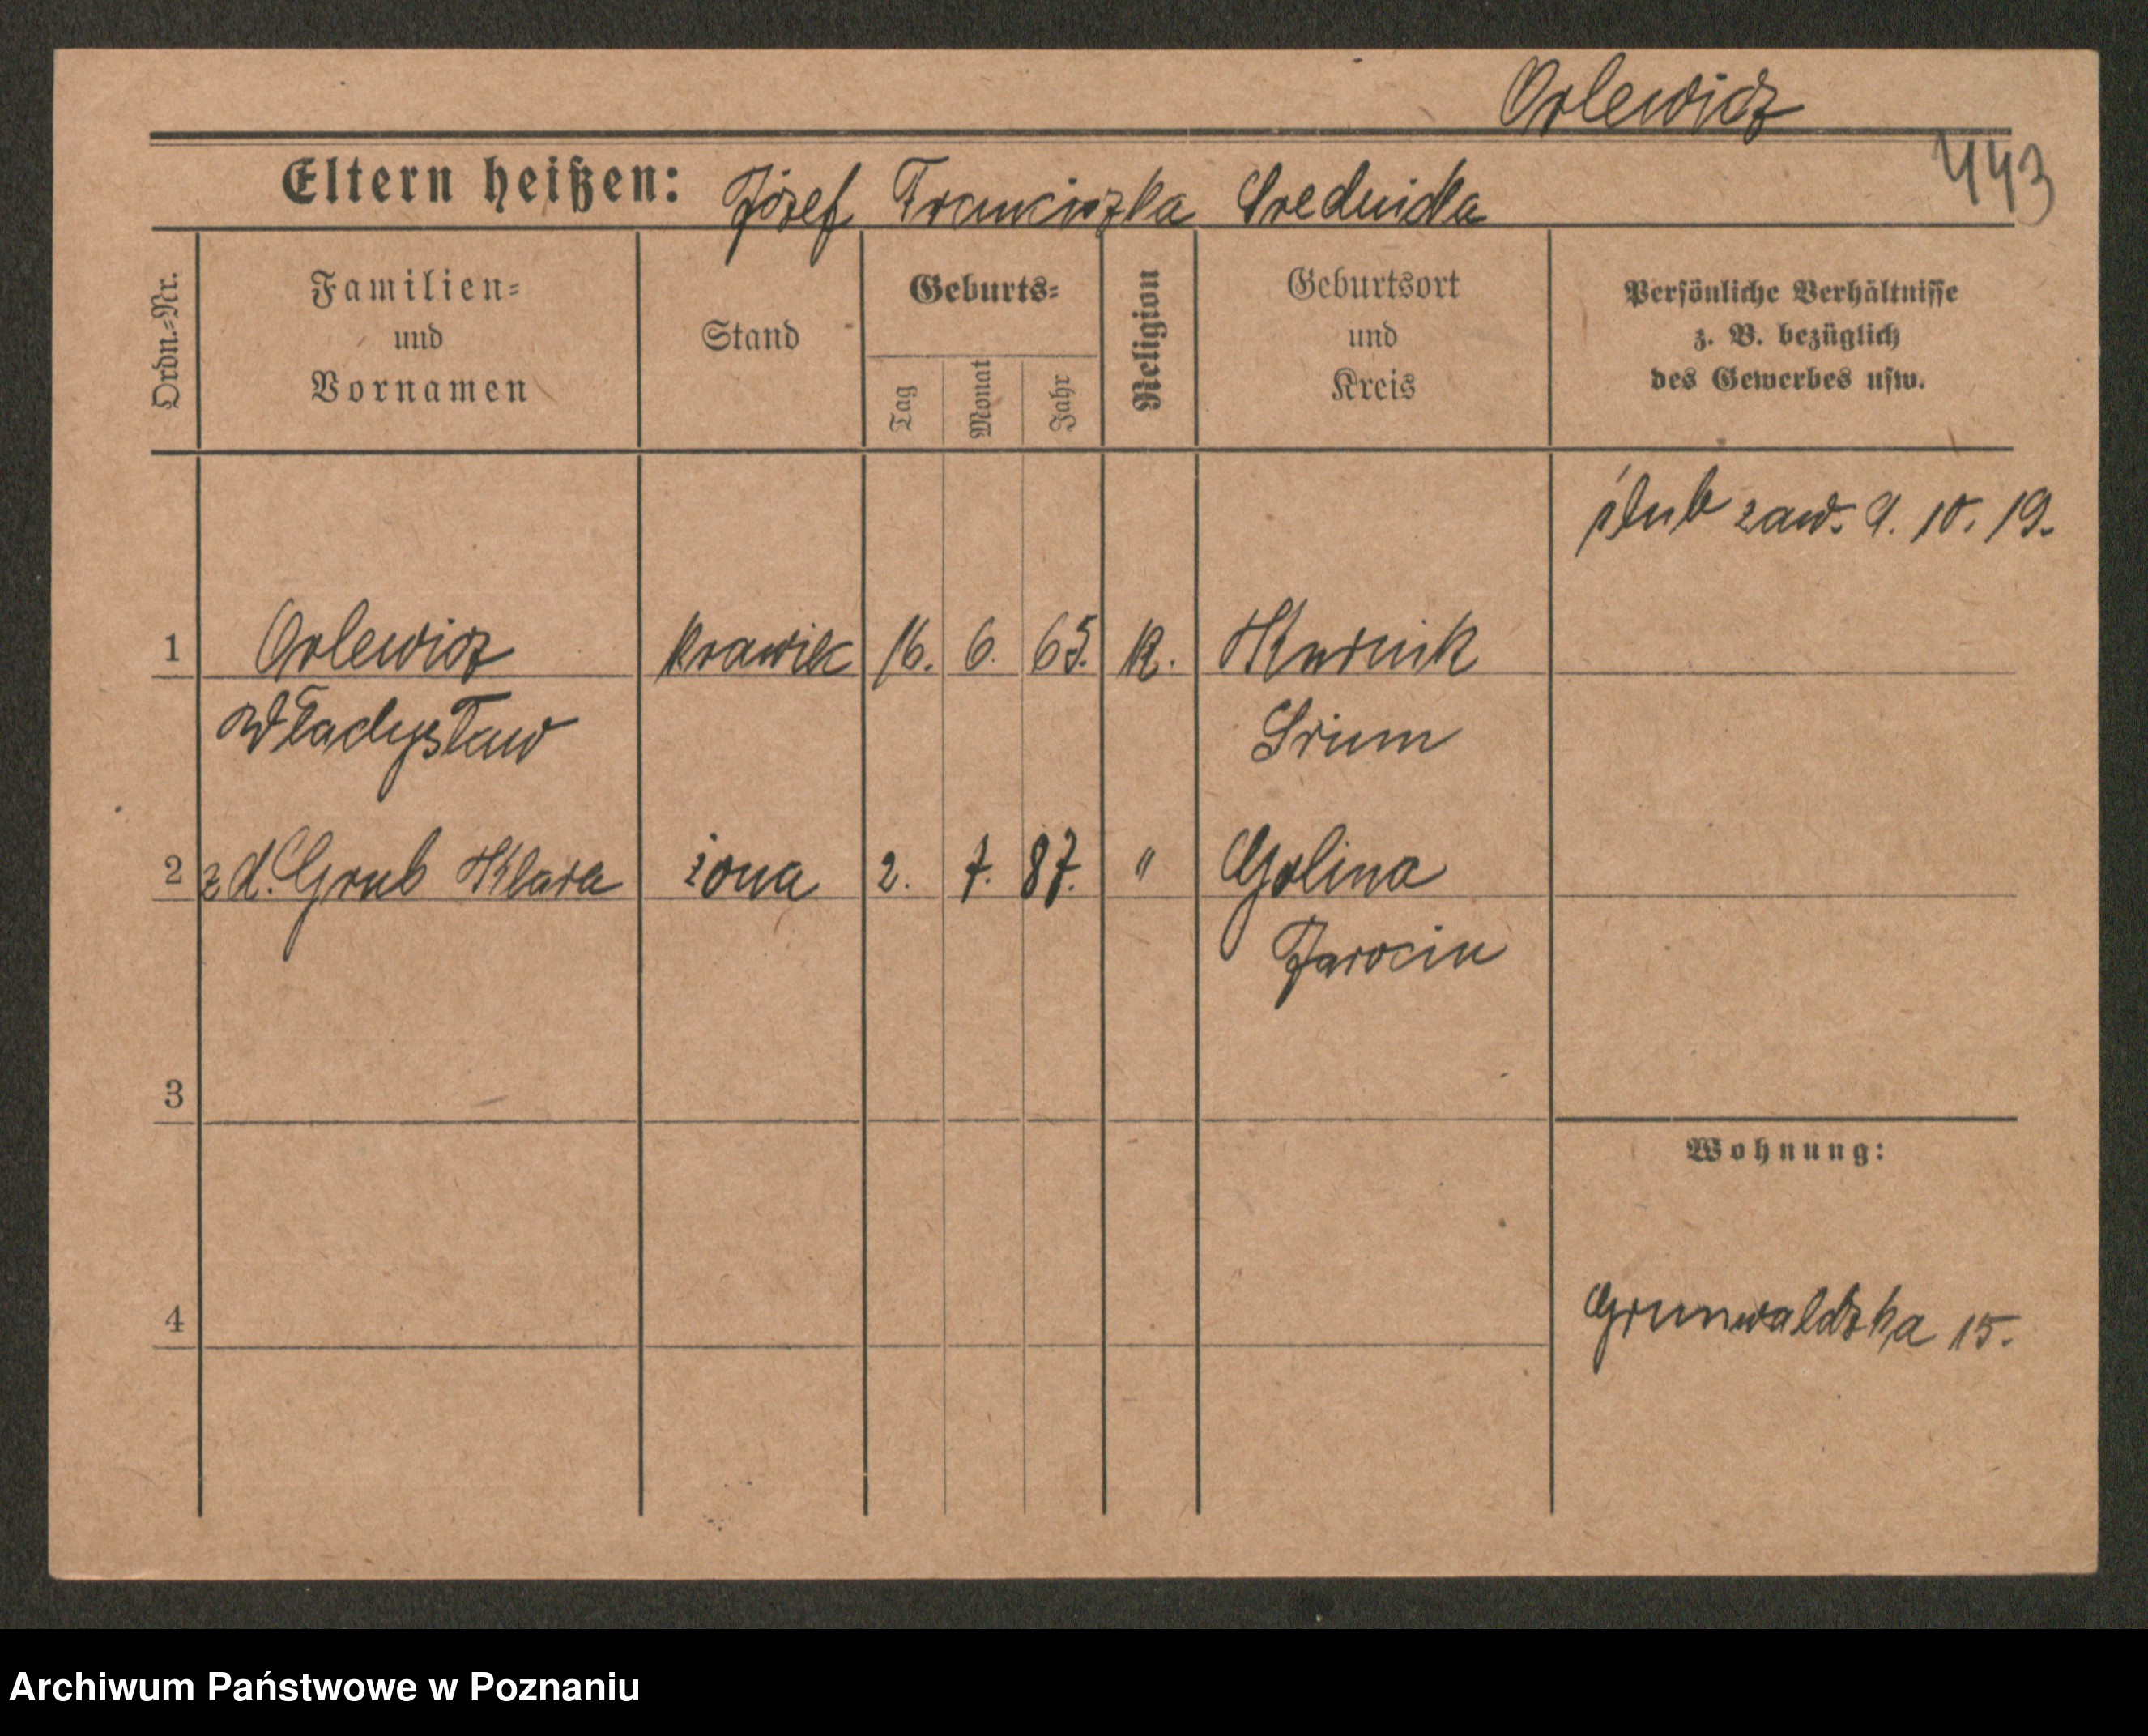 Orlewicz
443
Eltern heißen: Józef Franciszka Srednicka
Ordn.=Nr.
Familien= und Vornamen
Stand
Geburts=
Tag
Monat
Jahr
Religion
Geburtsort und Kreis
Persönliche Verhältnisse z. B. bezüglich des Gewerbes usw.
ślub zaw. 9. 10. 19.
1 Orlewicz krawiec 16. 6. 65. K. Kurnik
Władysław Śrium
2 z d. Grub Klara żona 2. 7. 87. " Golina
Jarocin
3
Wohnung:
4
Grunwaldzka 15.
Archiwum Państwowe w Poznaniu